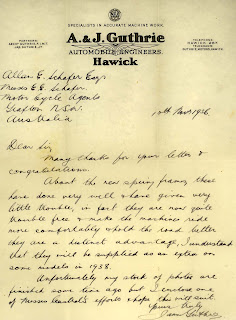 SPECIALISTS IN ACCURATE MACHINE WORK.
A. & J. Guthrie
AUTOMOBILE ENGINEERS
Hawick
Allan E. Schafer Esq.
Messrs E. E. Schafer,
Motor Cycle Agents
Grafton N.S.W.
Australia
10th Nov 1936
Dear Sir,
Many thanks for your letter &
congratulations.
About the new spring frames these
have done very well & have given very
little trouble, in fact they are now quite
trouble free & make the machine ride
more comfortably & hold the road better
they are a distinct advantage, I understand
that they will be supplied as an extra on
some models in 1938.
Unfortunately my stock of photos are
finished some time ago but I enclose one
of Messrs efforts & hope this will suit.
Yours truly
Guthrie